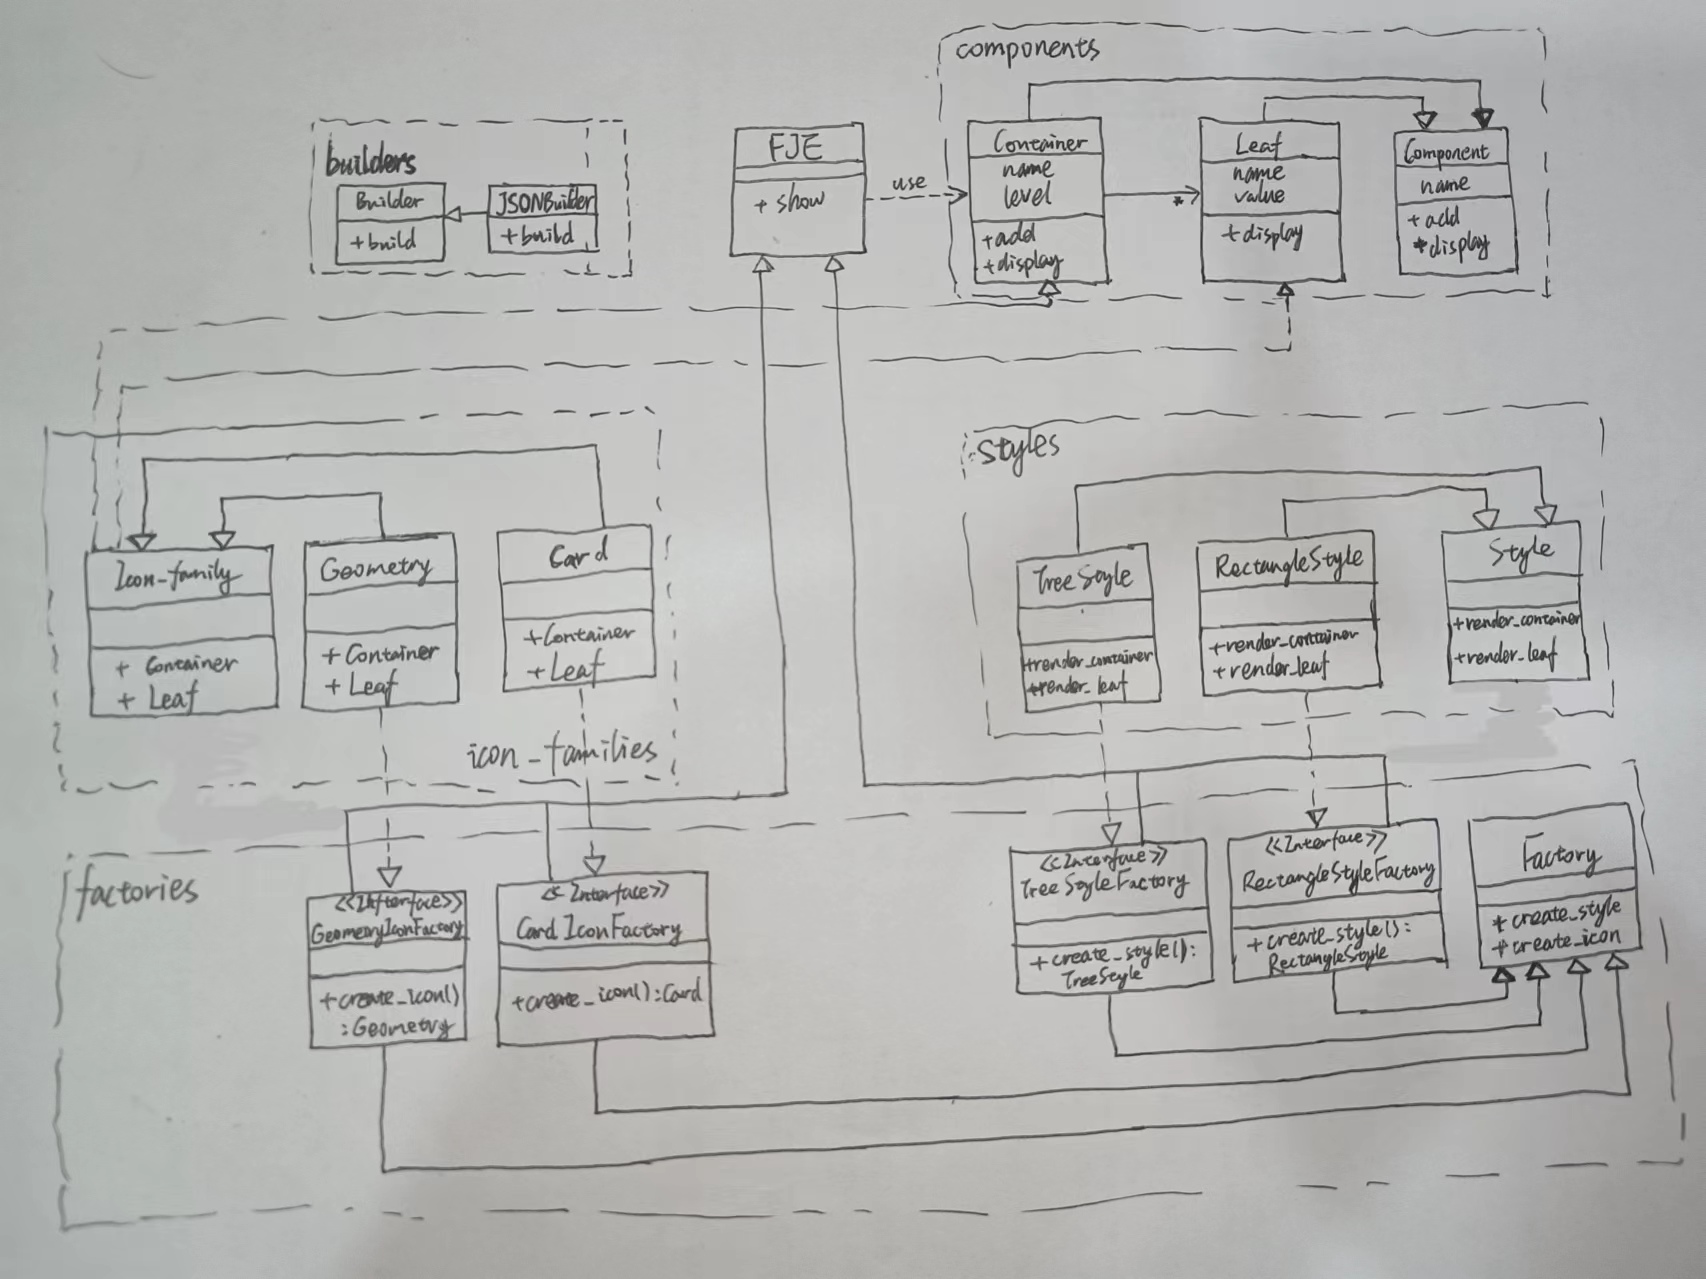 components
builders
Builder
+build
JSONBuilder
+build
FJE
+ show
use
Container
name
level
+add
+display
*
Leaf
name
value
+display
Component
name
+ add
*display
Icon-family
+ Container
+ Leaf
Geometry
+ Container
+ Leaf
Card
+Container
+ Leaf
icon_families
Styles
TreeStyle
+render_container
+render_leaf
RectangleStyle
+render_container
+render_leaf
Style
+render_container
+render_leaf
factories
<<Interface>>
GeometryIconFactory
+create_icon()
:Geometry
<< Interface>>
CardIconFactory
+create_icon():Card
<<Interface>>
TreeStyleFactory
+create_style():
TreeStyle
<<Interface>>
RectangleStyleFactory
+create_style():
RectangleStyle
Factory
* create_style
* create_icon